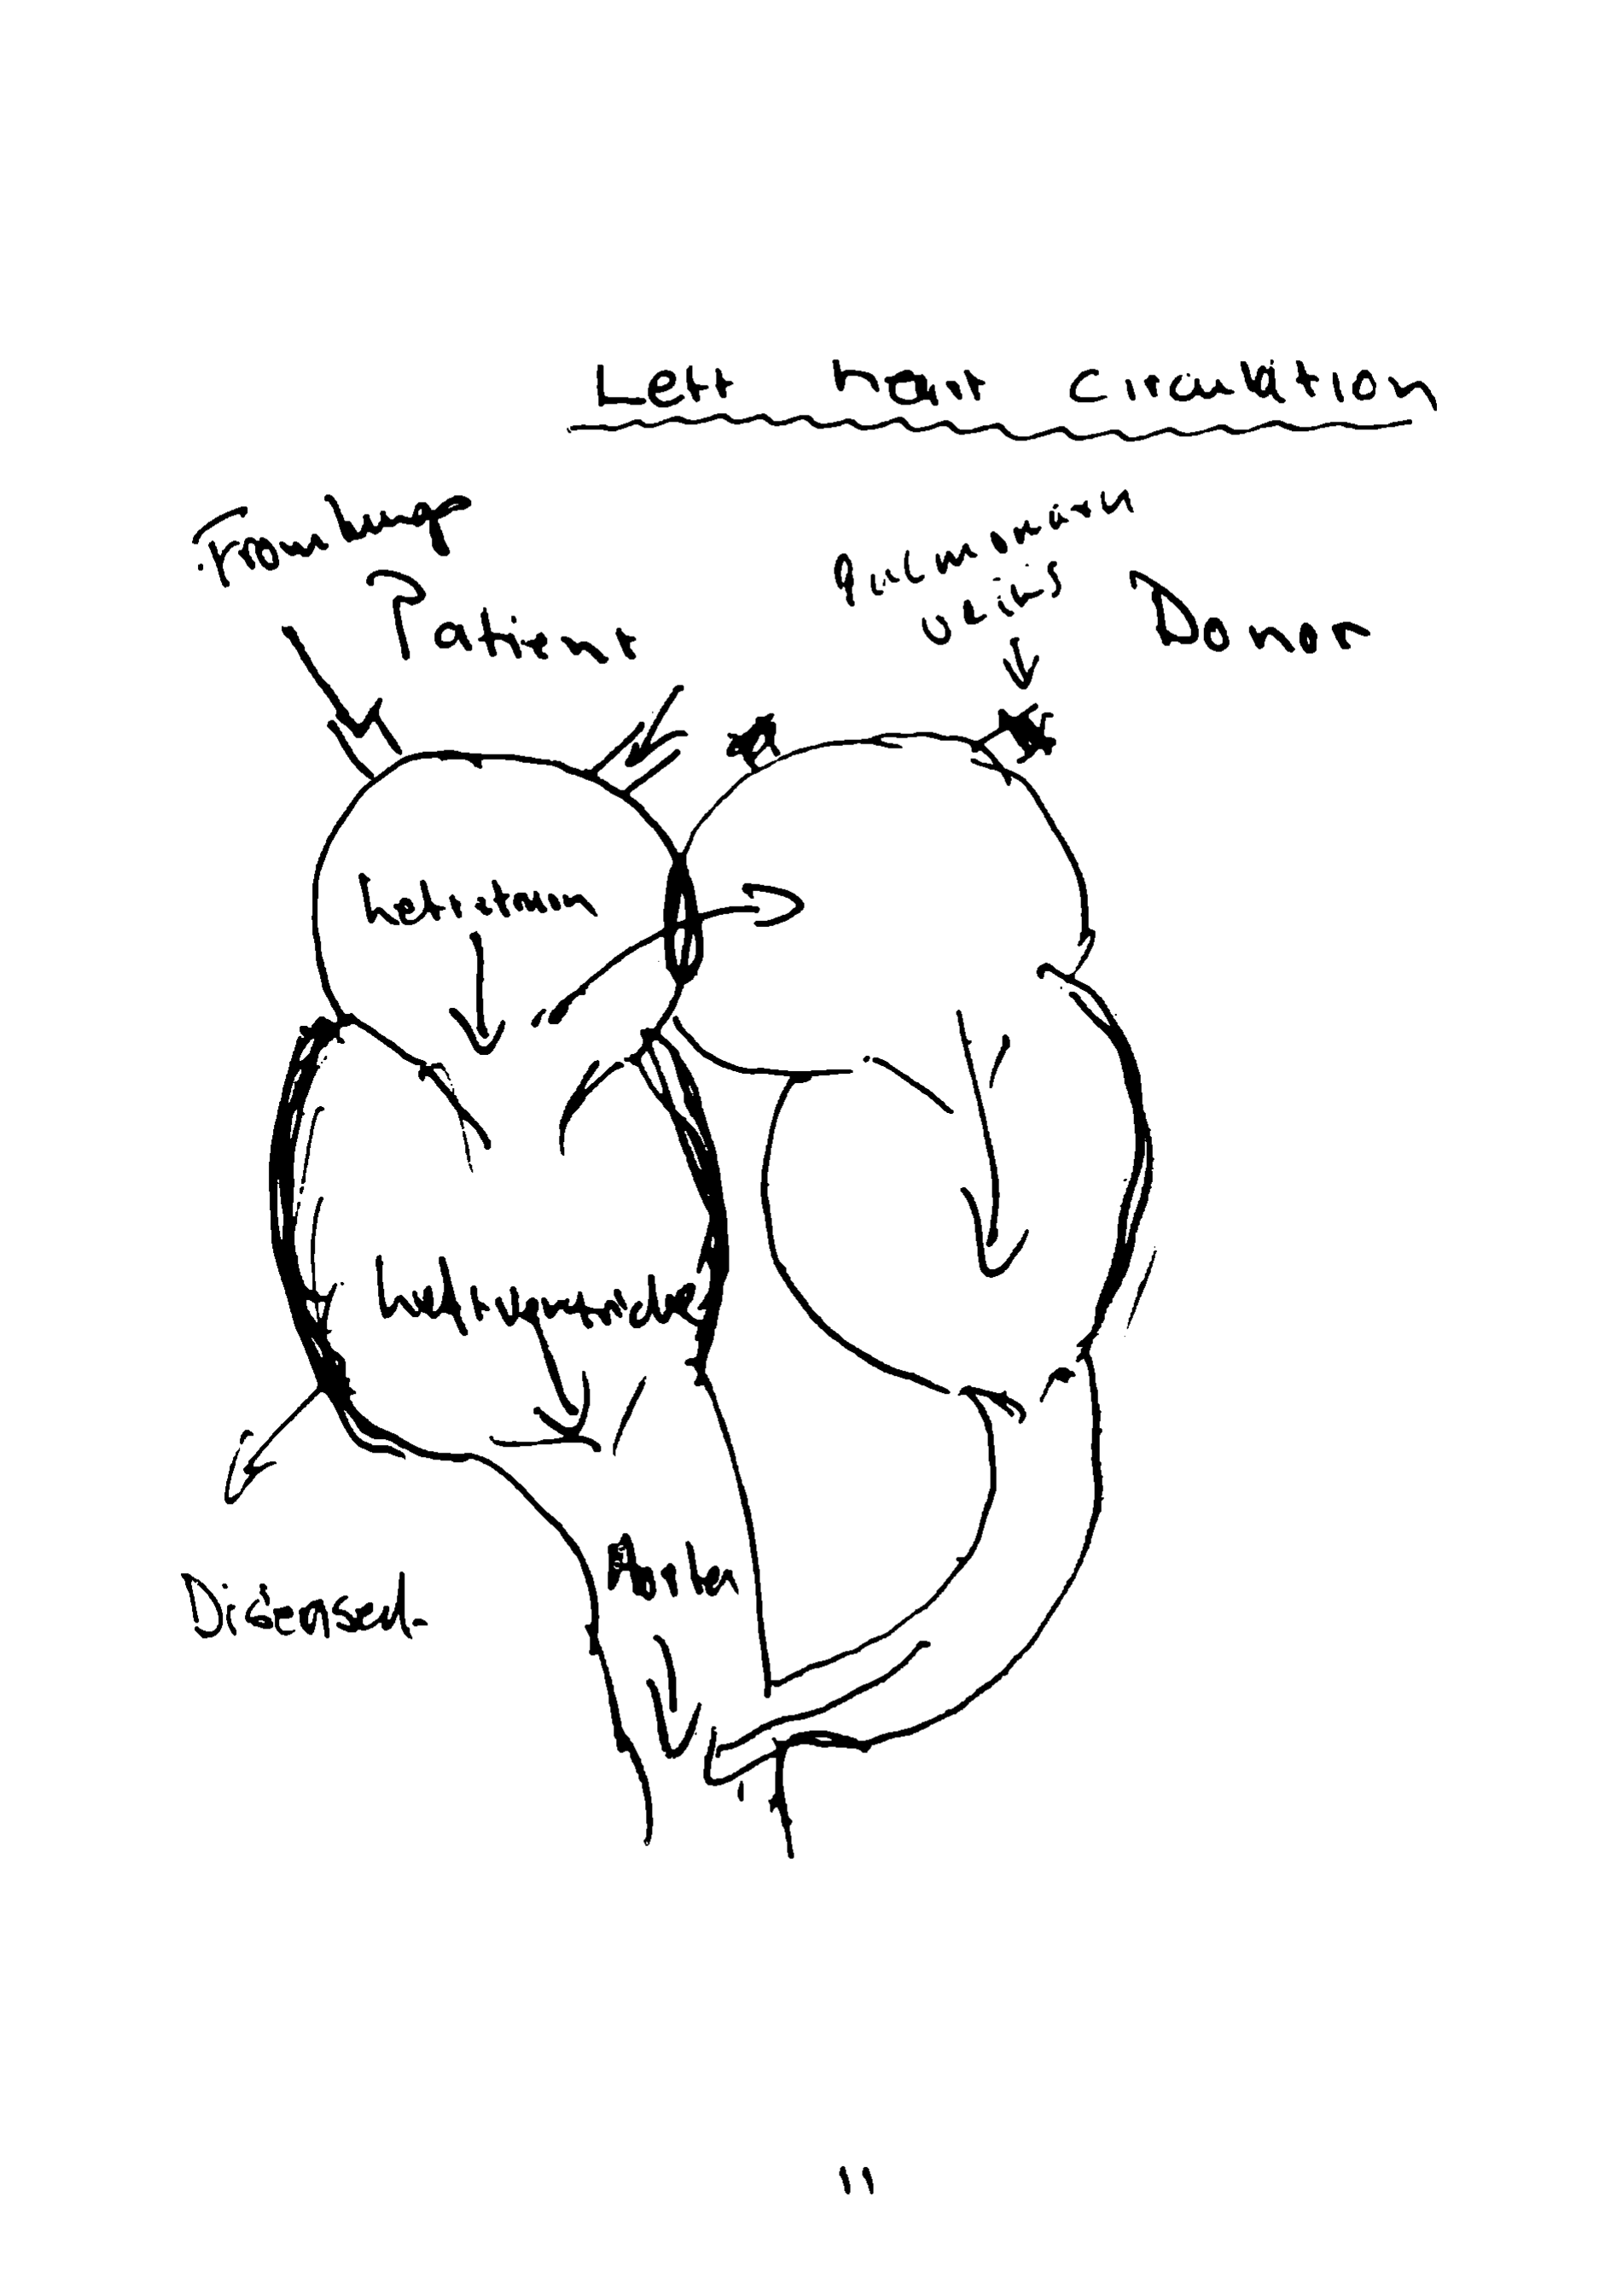 Left heart circulation
From lung
Patient
pulmonary
veins
Donor
Left atrium
Left ventricle
Aorta
Diseased.
11